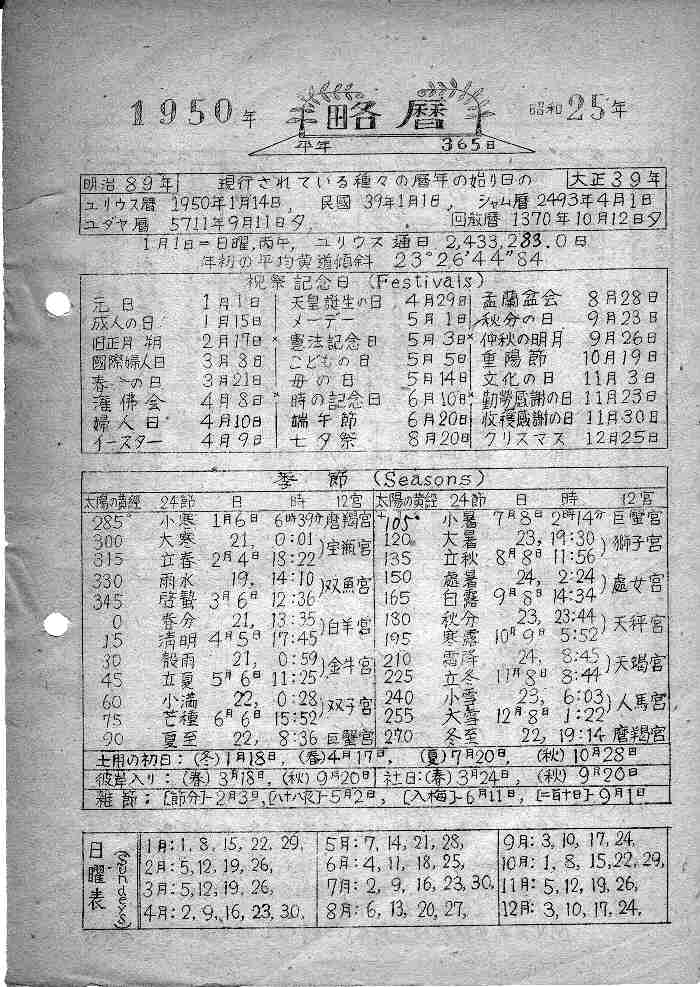 1950年 略暦 昭和25年
平年 365日
明治89年 現行されている種々の暦年の始り日の 大正39年
ユリウス暦 1950年1月14日, 民國 39年1月1日, シャム暦 2493年4月1日
ユダヤ暦 5711年9月11日夕 回教暦 1370年10月12日夕
1月1日=日曜,丙午, ユリウス通日 2,433,283.0日
年初の平均黄道傾斜 23°26′44″84
祝祭記念日 (Festivals)
元日 1月1日 天皇誕生の日 4月29日 盂蘭盆会 8月28日
成人の日 1月15日 メーデー 5月1日 秋分の日 9月23日
旧正月朔 2月17日 憲法記念日 5月3日 仲秋の明月 9月26日
國際婦人日 3月8日 こどもの日 5月5日 重陽節 10月19日
春分の日 3月21日 母の日 5月14日 文化の日 11月3日
灌佛会 4月8日 時の記念日 6月10日 勤労感謝の日 11月23日
婦人日 4月10日 端午節 6月20日 收穫感謝の日 11月30日
イースター 4月9日 七夕祭 8月20日 クリスマス 12月25日
季節 (Seasons)
太陽の黄経 24節 日 時 12宮 太陽の黄経 24節 日 時 12宮
285° 小寒 1月6日 6時39分 磨羯宮 105° 小暑 7月8日 2時14分 巨蟹宮
300 大寒 21, 0:01 宝瓶宮 120 大暑 23, 19:30 獅子宮
315 立春 2月4日 18:22 135 立秋 8月8日 11:56
330 雨水 19, 14:10 双魚宮 150 處暑 24, 2:24 處女宮
345 啓蟄 3月6日 12:36 165 白露 9月8日 14:34
0 春分 21, 13:35 白羊宮 180 秋分 23, 23:44 天秤宮
15 清明 4月5日 17:45 195 寒露 10月9日 5:52
30 穀雨 21, 0:59 金牛宮 210 霜降 24, 8:45 天蝎宮
45 立夏 5月6日 11:25 225 立冬 11月8日 8:44
60 小満 22, 0:28 双子宮 240 小雪 23, 6:03 人馬宮
75 芒種 6月6日 15:52 255 大雪 12月8日 1:22
90 夏至 22, 8:36 巨蟹宮 270 冬至 22, 19:14 磨羯宮
土用の初日:(冬)1月18日, (春)4月17日, (夏)7月20日, (秋)10月28日
彼岸入り:(春)3月18日, (秋)9月20日 社日:(春)3月24日, (秋)9月20日
雑節:[節分]-2月3日,[八十八夜]-5月2日, [入梅]-6月11日, [二百十日]-9月1日
日曜表 (Sundays)
1月: 1, 8, 15, 22, 29, 5月: 7, 14, 21, 28, 9月: 3, 10, 17, 24,
2月: 5, 12, 19, 26, 6月: 4, 11, 18, 25, 10月: 1, 8, 15, 22, 29,
3月: 5, 12, 19, 26, 7月: 2, 9, 16, 23, 30, 11月: 5, 12, 19, 26,
4月: 2, 9, 16, 23, 30, 8月: 6, 13, 20, 27, 12月: 3, 10, 17, 24,